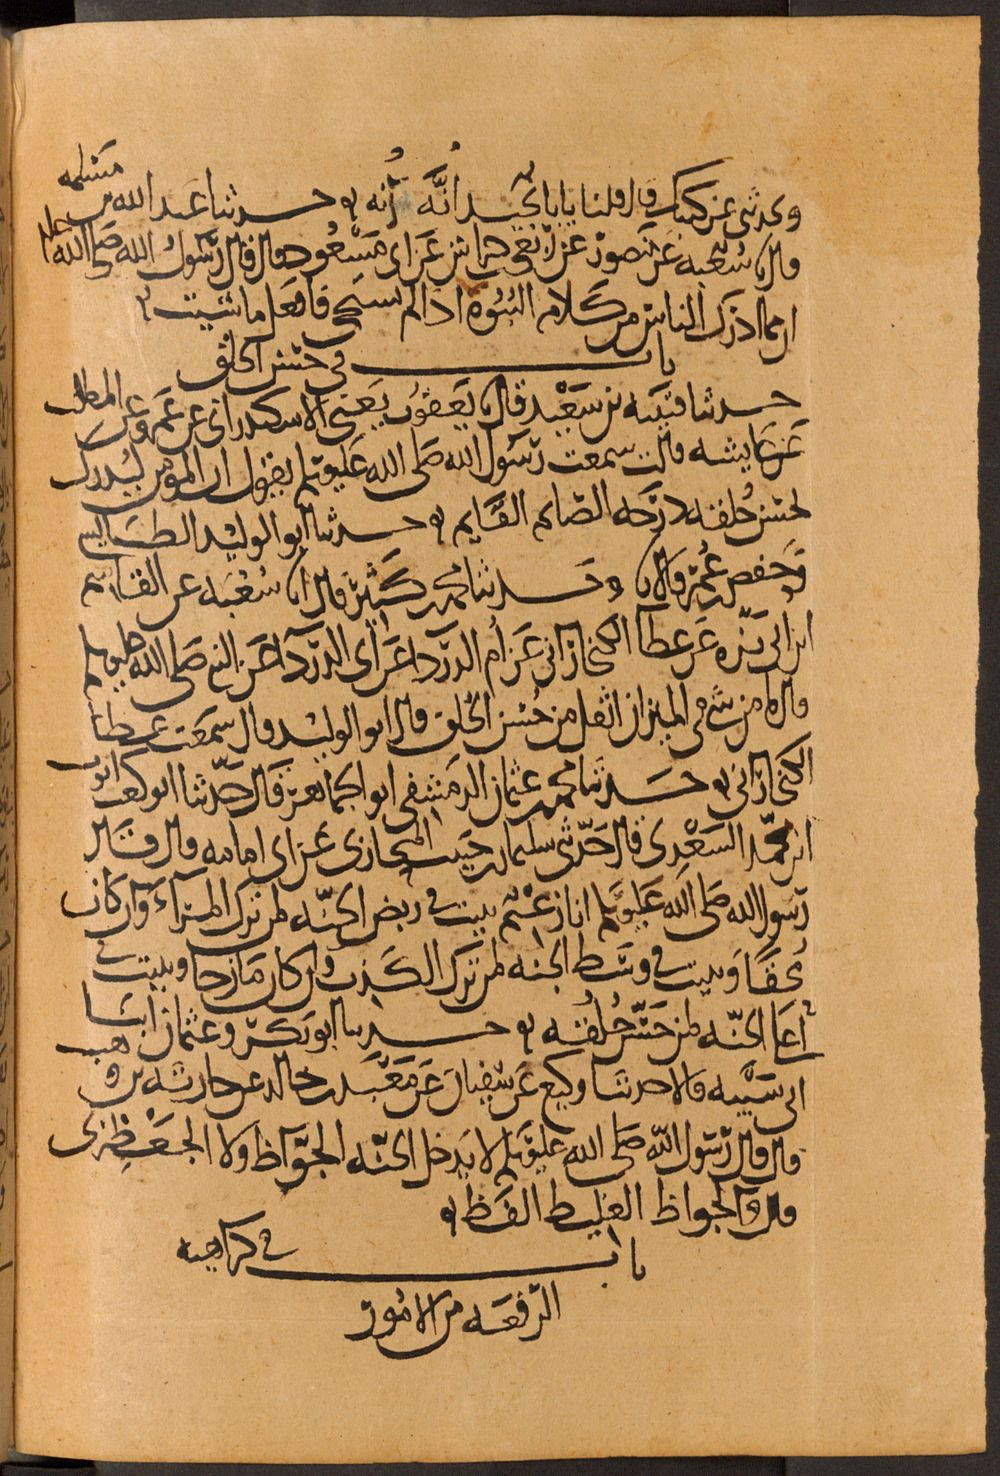 وتحدثني عن كتبك قال قلنا يا با نجيد انه انه ه حدثنا عبد الله بن مسلمه
قال نا شعبه عن منصور عن ربعي بن حراش عن ابي مسعود قال قال رسول الله صلى الله عليه وسلم
ان مما ادرك الناس من كلام النبوه اذا لم تستحي فافعل ما شيت
باب في حسن الخلق
حدثنا قتيبه بن سعيد قال نا يعقوب يعني الاسكندراني عن عمرو عن المطلب
عن عايشه قالت سمعت رسول الله صلى الله عليه وسلم يقول ان المومن ليدرك
بحسن خلقه درجه الصايم القايم ه حدثنا ابو الوليد الطيالسي
وحفص بن عمر قالا نا وحدثنا محمد بن كثير قال انا شعبه عن القاسم
ابن ابي بزه عن عطا الكيخاراني عن ام الدردا عن ابي الدردا عن النبي صلى الله عليه وسلم
قال ما من شي في الميزان اثقل من حسن الخلق قال ابو الوليد قال سمعت عطا
الكيخاراني ه حدثنا محمد بن عثمان الدمشقي ابو الجماهر قال حدثنا ابو كعب ايوب
ابن محمد السعدي قال حدثني سليمان بن حبيب المحاربي عن ابي امامه قال قال
رسول الله صلى الله عليه وسلم انا زعيم ببيت في ربض الجنه لمن ترك المراء وان كان
محقا وببيت في وسط الجنه لمن ترك الكذب وان كان مازحا وببيت في
اعلا الجنه لمن حسن خلقه ه حدثنا ابو بكر وعثمان ابنا
ابي شيبه قالا حدثنا وكيع عن سفيان عن معبد بن خالد عن حارثه بن وهب
قال قال رسول الله صلى الله عليه وسلم لا يدخل الجنه الجواظ ولا الجعظري
قال والجواظ الغليظ الفظ ه
باب في كراهيه
الرفعه من الامور